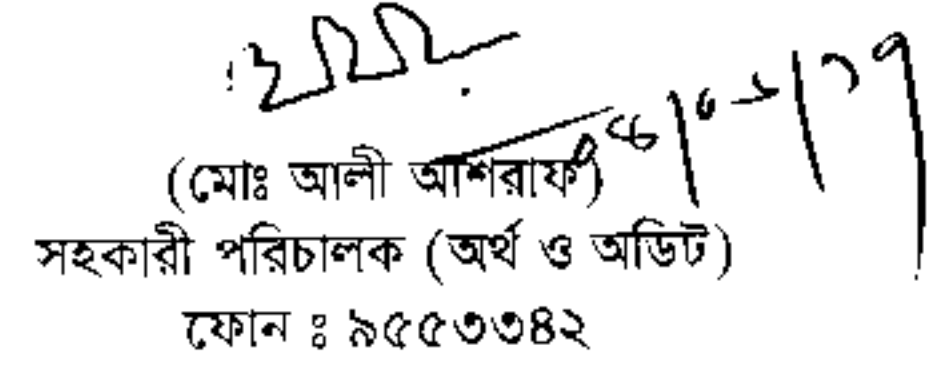 (মোঃ আলী আশরাফ)
সহকারী পরিচালক (অর্থ ও অডিট)
ফোন ঃ ৯৫৫৩৩৪২